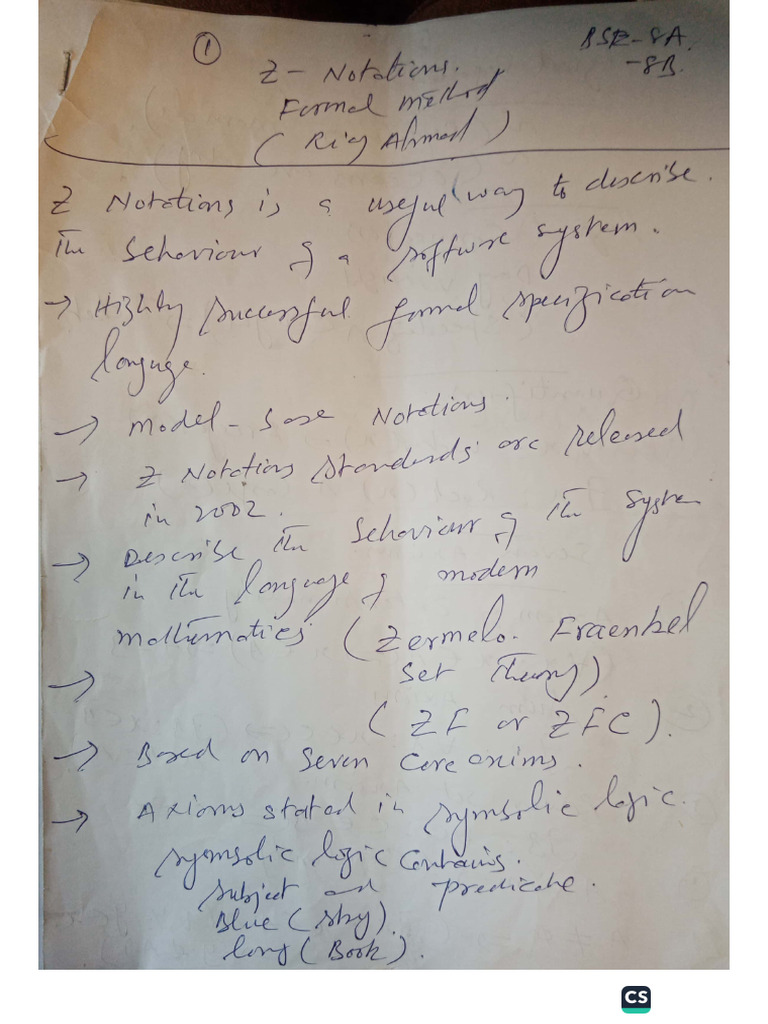 1
BSE-8A.
-8B.
Z - Notations.
Formal method
(Riaz Ahmad)
Z Notations is a useful way to describe.
the behaviour of a software system.
→ Highly successful formal specification
language.
→ Model-base Notations.
→ Z Notations standards are released
in 2002.
→ Describe the behaviour of the system
in the language of modern
mathematics (Zermelo. Fraenkel
→ Set Theory).
(ZF or ZFC).
→ Based on seven core axioms.
→ Axioms stated in symbolic logic.
symbolic logic contains.
subject and predicate.
Blue (sky).
long (Book).
CS